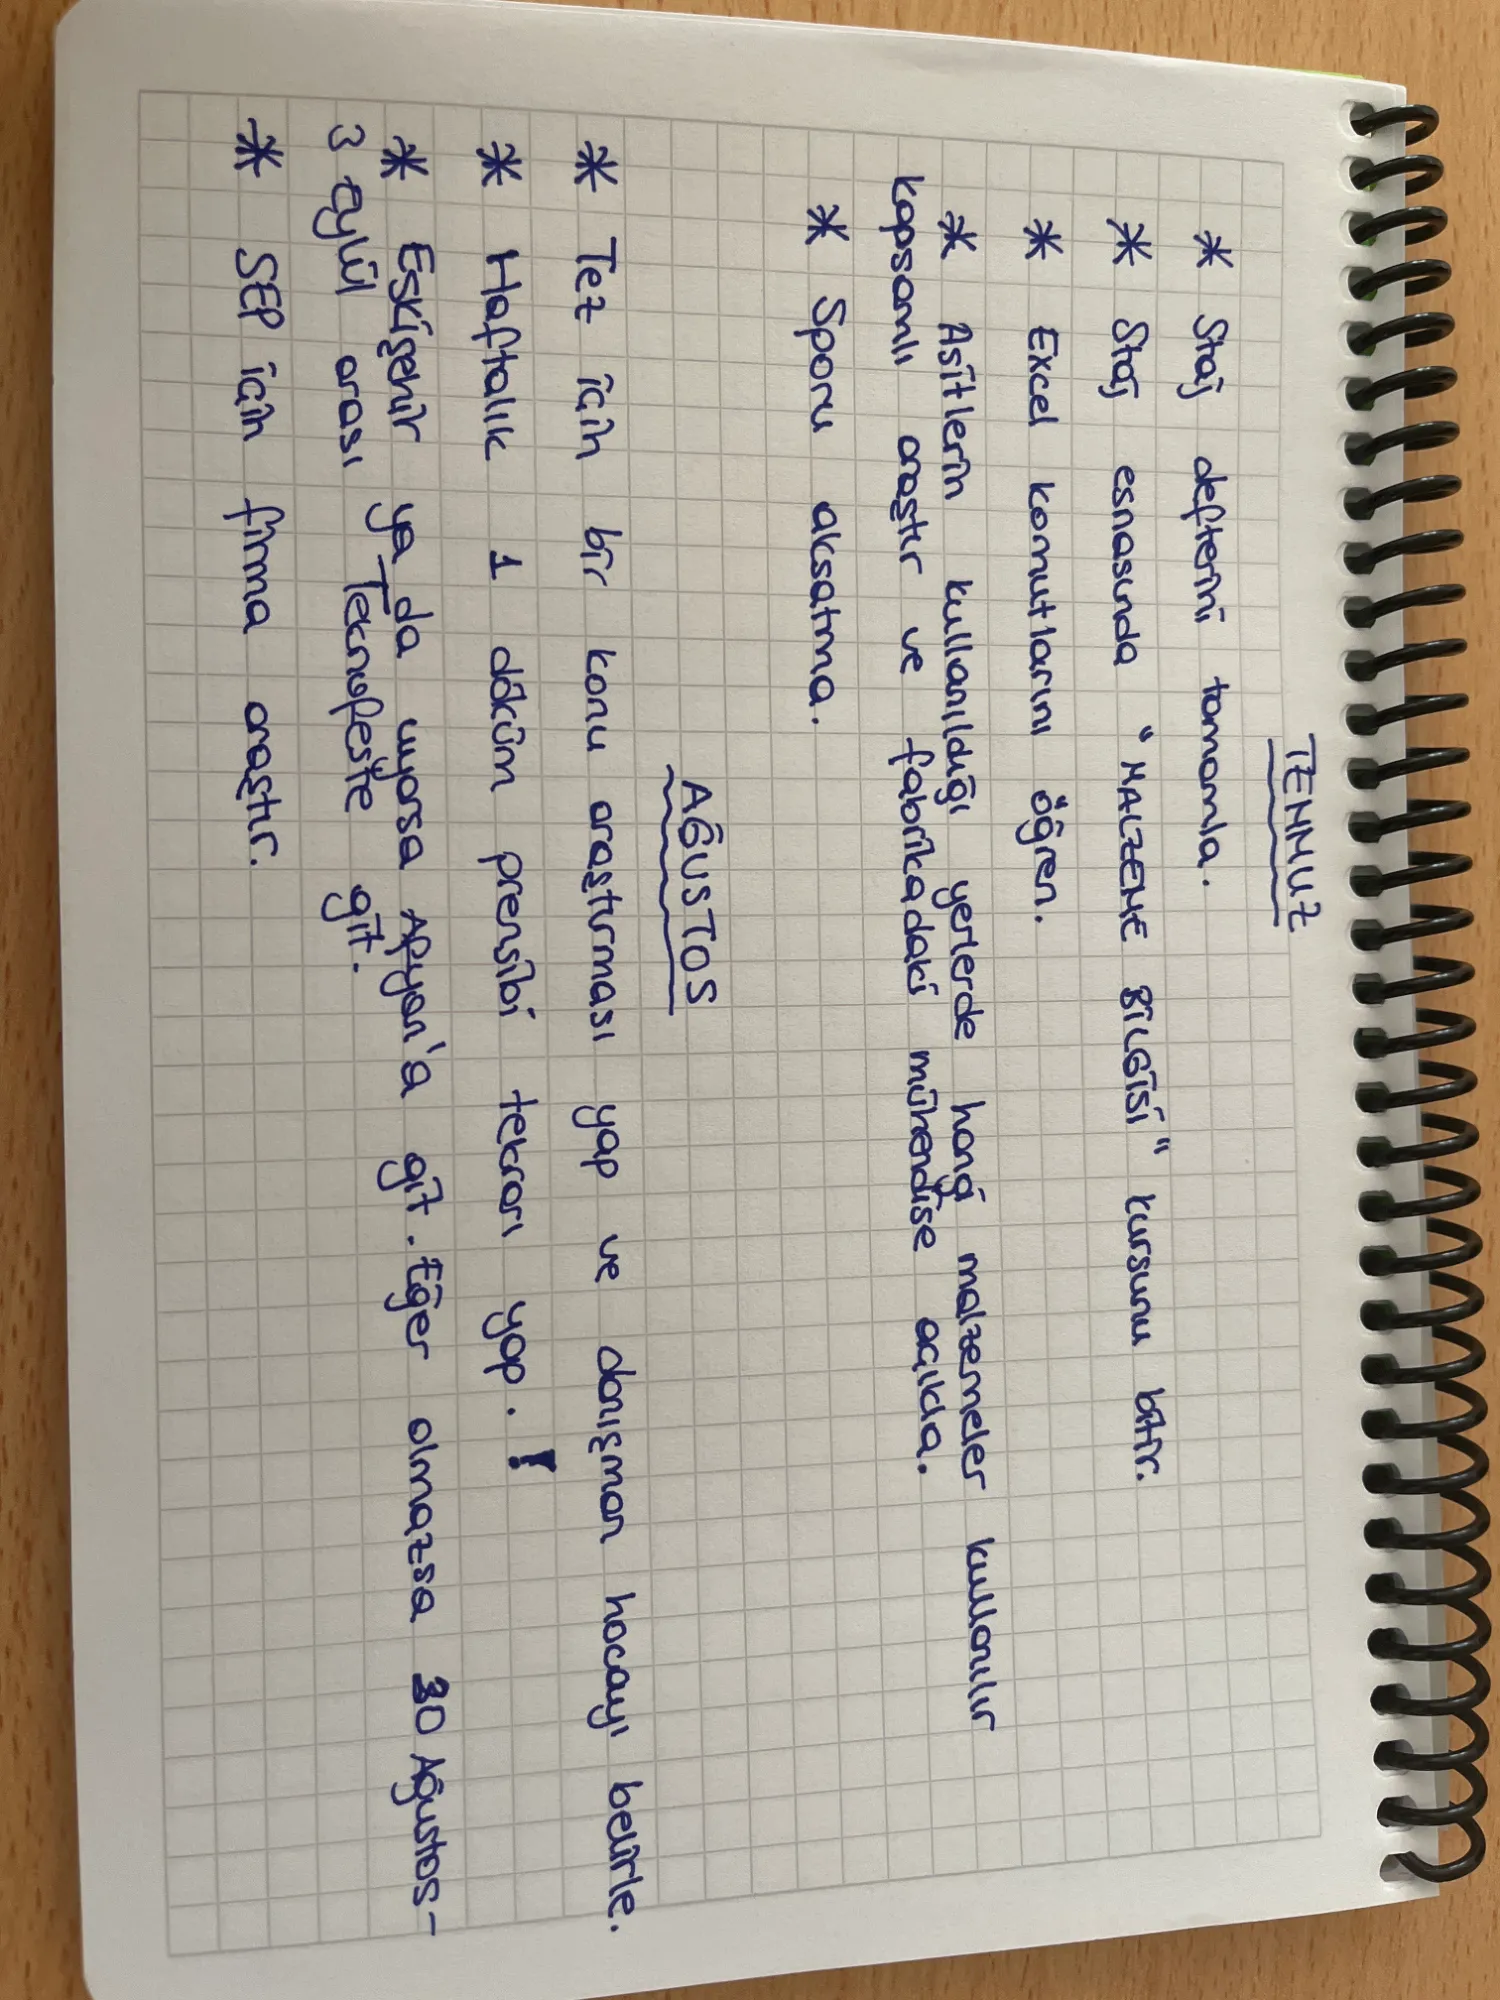 TEMMUZ
* Staj defterini tamamla.
* Staj esnasında "MALZEME BİLGİSİ" kursunu bitir.
* Excel komutlarını öğren.
* Asitlerin kullanıldığı yerlerde hangi malzemeler kullanılır
kapsamlı araştır ve fabrikadaki mühendise açıkla.
* Sporu aksatma.
AĞUSTOS
* Tez için bir konu araştırması yap ve danışman hocayı belirle.
* Haftalık 1 döküm prensibi tekrarı yap. !
* Eskişehir ya da uyarsa Afyon'a git. Eğer olmazsa 30 Ağustos-
3 Eylül arası Teknofeste git.
* SEP için firma araştır.